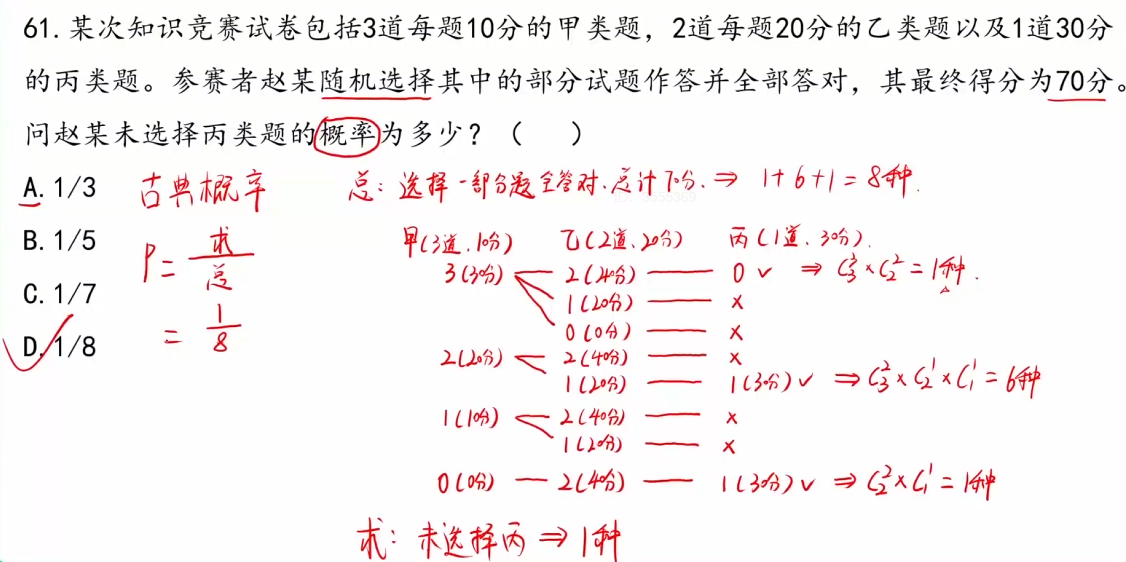 61. 某次知识竞赛试卷包括3道每题10分的甲类题，2道每题20分的乙类题以及1道30分
的丙类题。参赛者赵某随机选择其中的部分试题作答并全部答对，其最终得分为70分。
问赵某未选择丙类题的概率为多少？（　　）
A. 1/3
B. 1/5
C. 1/7
D. 1/8
古典概率
P = 求/总
= 1/8
总: 选择一部分题全答对.总计70分. ⇒ 1+6+1=8种.
甲(3道.10分) 乙(2道.20分) 丙(1道.30分).
3(30分) — 2(40分) — 0 ✓ ⇒ C₃³×C₂²=1种.
1(20分) — ×
0(0分) — ×
2(20分) — 2(40分) — ×
1(20分) — 1(30分) ✓ ⇒ C₃²×C₂¹×C₁¹=6种
1(10分) — 2(40分) — ×
1(20分) — ×
0(0分) — 2(40分) — 1(30分) ✓ ⇒ C₂²×C₁¹=1种
求: 未选择丙 ⇒ 1种